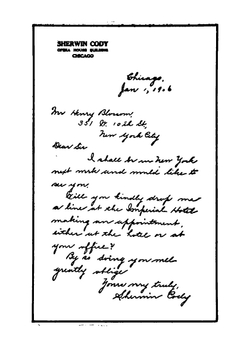 SHERWIN CODY
OPERA HOUSE BUILDING
CHICAGO
Chicago,
Jan 1, 1906
Mr Henry Blossom,
331 W. 10th St,
New York City
Dear Sir
I shall be in New York
next week and would like to
see you.
Will you kindly drop me
a line at the Imperial Hotel
making an appointment,
either at the hotel or at
your office?
By so doing you will
greatly oblige
Yours very truly,
Sherwin Cody